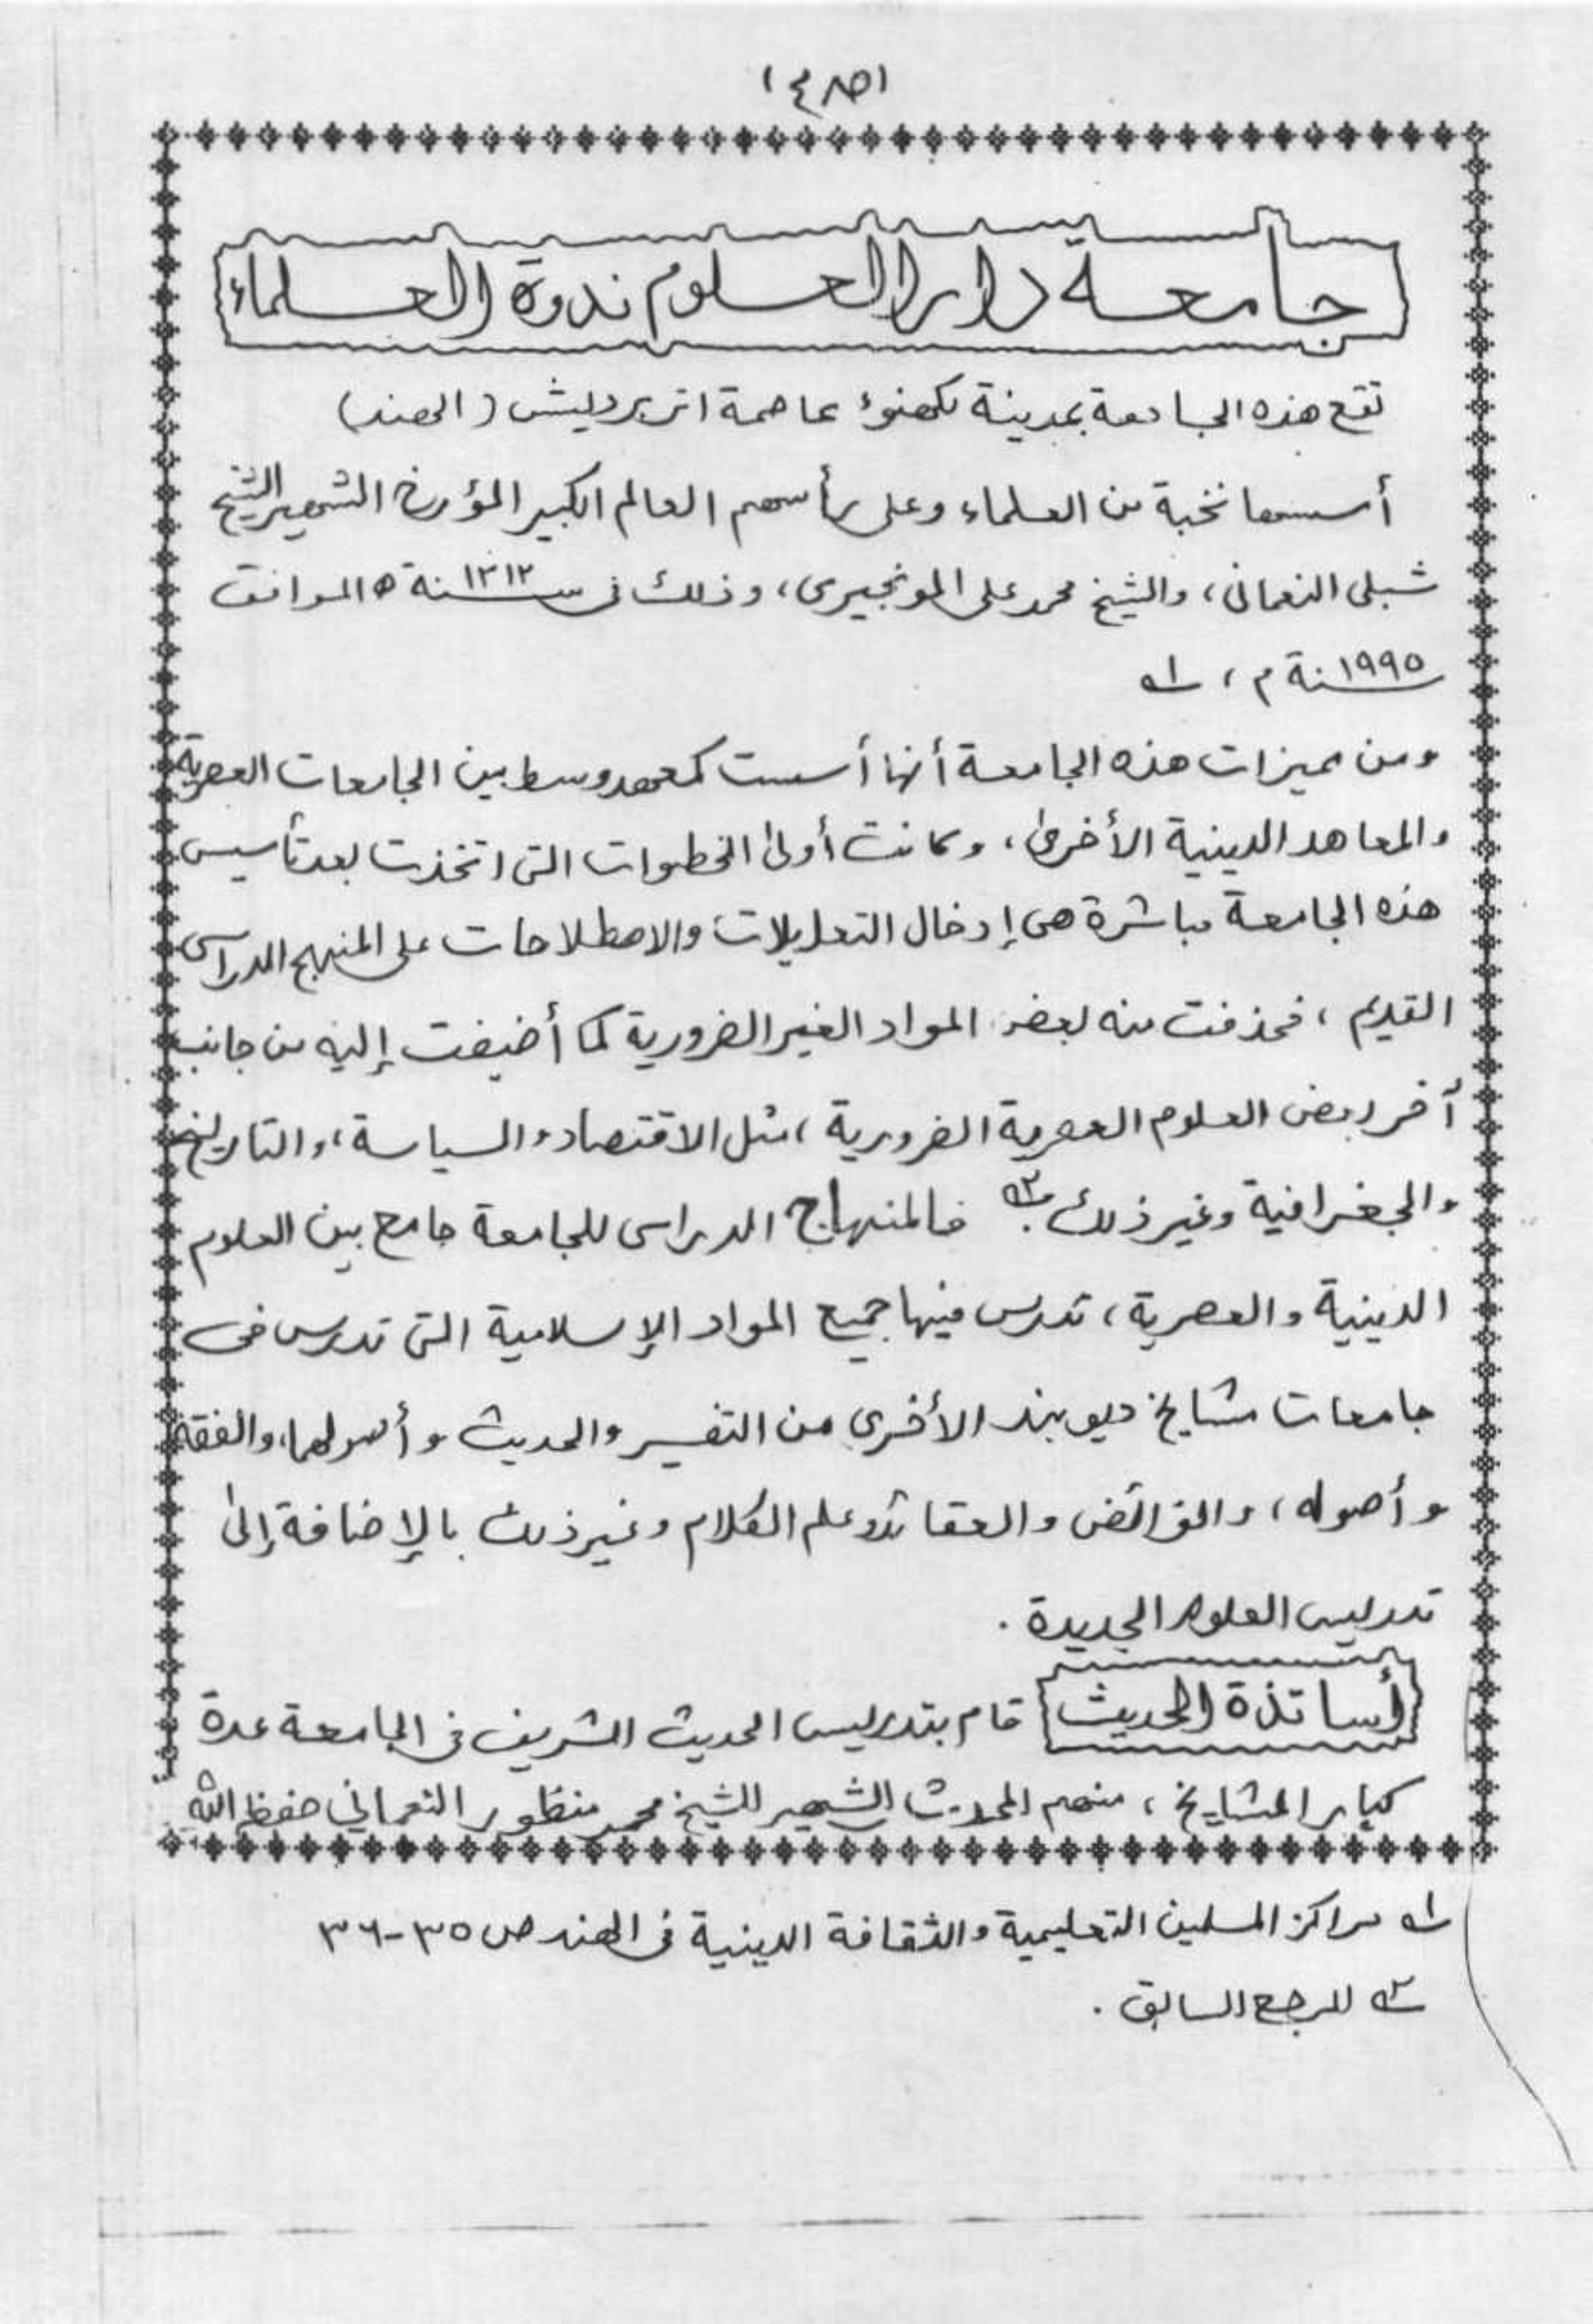 (٤٨٥)
جامعة دار العلوم ندوة العلماء
تقع هذه الجامعة بمدينة لكهنوء عاصمة اتر برديش (الهند)
أسسها نخبة من العلماء وعلى رأسهم العالم الكبير المؤرخ الشهير الشيخ
شبلى النعمانى، والشيخ محمد على المونجيرى، وذلك فى سنة ١٣١٢ ه الموافق
سنة ١٩٩٥ م، ـه١
ومن مميزات هذه الجامعة أنها أسست كمعهد وسط بين الجامعات العصرية
والمعاهد الدينية الأخرى، وكانت أولى الخطوات التى اتخذت بعد تأسيس
هذه الجامعة مباشرة هى إدخال التعديلات والاصطلاحات على المنهج الدراسى
القديم، فحذفت منه بعض المواد الغير الضرورية كما أضيفت إليه من جانب
آخر بعض العلوم العصرية الضرورية، مثل الاقتصاد والسياسة، والتاريخ
والجغرافية وغير ذلك. ـه٢ فالمنهاج الدراسى للجامعة جامع بين العلوم
الدينية والعصرية، تدرس فيها جميع المواد الإسلامية التى تدرس فى
جامعات مشايخ ديوبند الأخرى من التفسير والحديث وأصولهما، والفقه
وأصوله، والفرائض والعقائد وعلم الكلام وغير ذلك بالإضافة إلى
تدريس العلوم الجديدة.
أساتذة الحديث قام بتدريس الحديث الشريف فى الجامعة عدة
كبار المشايخ، منهم المحدث الشهير الشيخ محمد منظور النعماني حفظه الله
ـه١ مراكز المسلمين التعليمية والثقافة الدينية فى الهند ص ٣٥-٣٦
ـه٢ المرجع السابق.